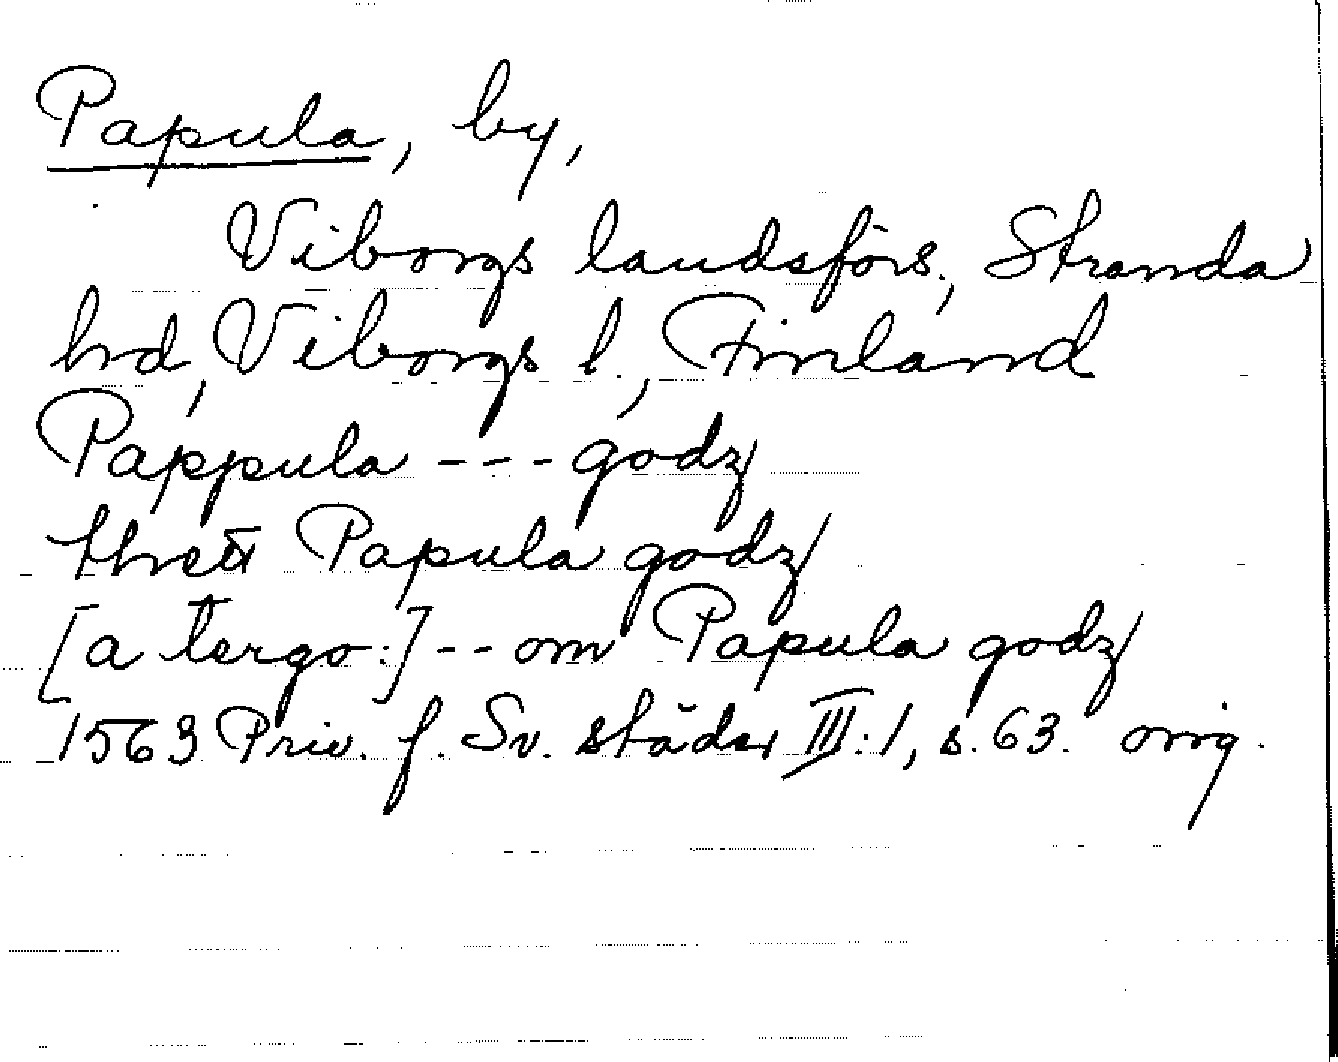 Papula, by,
Viborgs landsförs., Stranda
hd, Viborgs l., Finland
Pappula --- godz
thett Papula godz
[a tergo:] -- om Papula godz
1563 Priv. f. Sv. städer III:1, s. 63. orig.